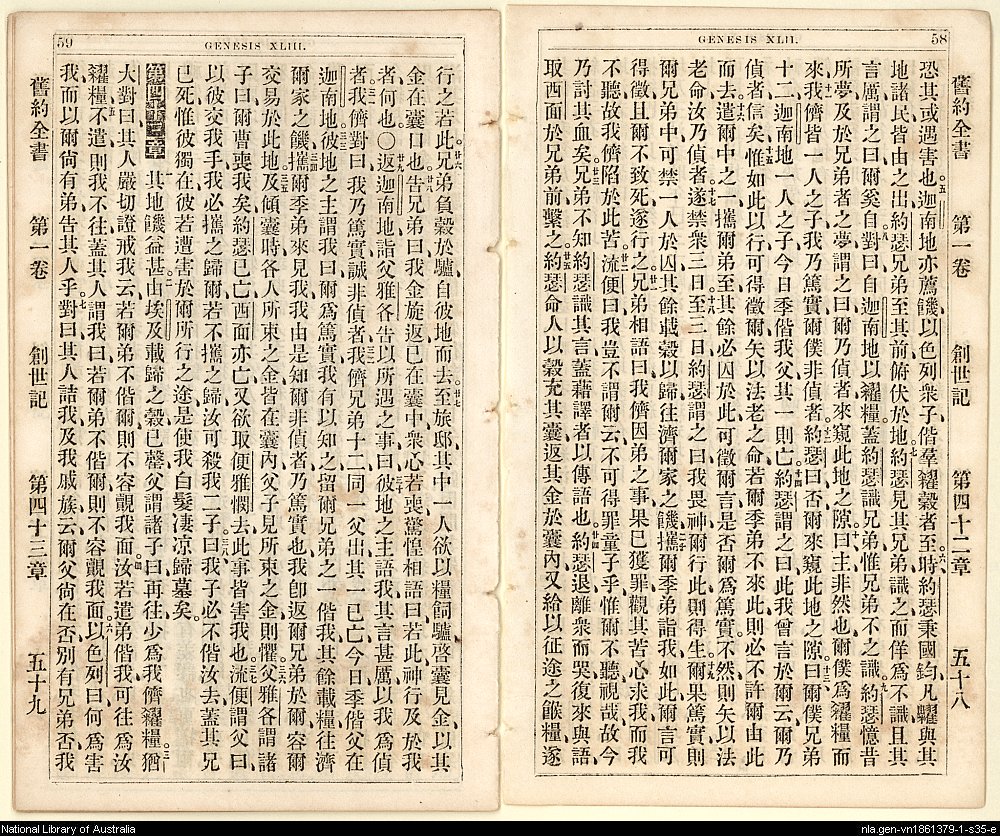 58
GENESIS XLII.
舊約全書 第一卷 創世記 第四十二章 五十八
恐其或遇害也迦南地亦薦饑以色列衆子偕羣糴穀者至時約瑟秉國鈞凡糶與其
地諸民皆由之出約瑟兄弟至其前俯伏於地約瑟見其兄弟識之而佯爲不識且其
言厲謂之曰爾奚自對曰自迦南地以糴糧蓋約瑟識兄弟惟兄弟不之識約瑟憶昔
所夢及於兄弟者之夢謂之曰爾乃偵者來窺此地之隙曰主非然也爾僕爲糴糧而
來我儕皆一人之子我乃篤實爾僕非偵者約瑟曰否爾來窺此地之隙曰爾僕兄弟
十二迦南地一人之子今日季偕我父其一則亡約瑟謂之曰此我曾言於爾云爾乃
偵者信矣惟如此以行可得徵爾矢以法老之命若爾季弟不來此則必不許爾由此
而去遣爾中之一攜爾弟至其餘必囚於此可徵爾言是否爾爲篤實不然則矢以法
老命汝乃偵者遂禁衆三日至三日約瑟謂之曰我畏神爾行此則得生爾果篤實則
爾兄弟中可禁一人於囚其餘載穀以歸往濟爾家之饑攜爾季弟詣我如此爾言可
得徵且爾不致死遂行之兄弟相語曰我儕因弟之事果已獲罪觀其苦心求我而我
不聽故我儕陷於此苦流便曰我豈不謂爾云不可得罪童子乎惟爾不聽視哉故今
乃討其血矣兄弟不知約瑟識其言蓋藉譯者以傳語也約瑟退離衆而哭復來與語
取西面於兄弟前繫之約瑟命人以穀充其囊返其金於囊內又給以征途之餱糧遂
59
GENESIS XLIII.
行之若此兄弟負穀於驢自彼地而去至旅邸其中一人欲以糧飼驢啓囊見金以其
金在囊口也告兄弟曰我金旋返已在囊中衆心若喪驚惶相語曰若此神行及於我
者何也〇返迦南地詣父雅各告以所遇之事曰彼地之主語我其言甚厲以我爲偵
者我儕對曰我乃篤實誠非偵者我儕兄弟十二同一父出其一已亡今日季偕父在
迦南地彼地之主謂我曰爾爲篤實我有以知之留爾兄弟之一偕我其餘載糧往濟
爾家之饑攜爾季弟來見我我由是知爾非偵者乃篤實也我卽返爾兄弟於爾容爾
交易於此地及傾囊時各人所束之金皆在囊內父子見所束之金則懼父雅各謂諸
子曰爾曹喪我矣約瑟已亡西面亦亡又欲取便雅憫去此事皆害我也流便謂父曰
以彼交我手我必攜之歸爾若不攜之歸汝可殺我二子曰我子必不偕汝去蓋其兄
已死惟彼獨在彼若遭害於爾所行之途是使我白髮凄凉歸墓矣
第四十三章 其地饑益甚由埃及載歸之穀已罄父謂諸子曰再往少爲我儕糴糧猶
大對曰其人嚴切證戒我云若爾弟不偕爾則不容覿我面汝若遣弟偕我可往爲汝
糴糧不遣則我不往蓋其人謂我曰若爾弟不偕爾則不容覿我面以色列曰何爲害
我而以爾尙有弟告其人乎對曰其人詰我及我戚族云爾父尙在否別有兄弟否我
舊約全書 第一卷 創世記 第四十三章 五十九
National Library of Australia
nla.gen-vn1861379-1-s35-e